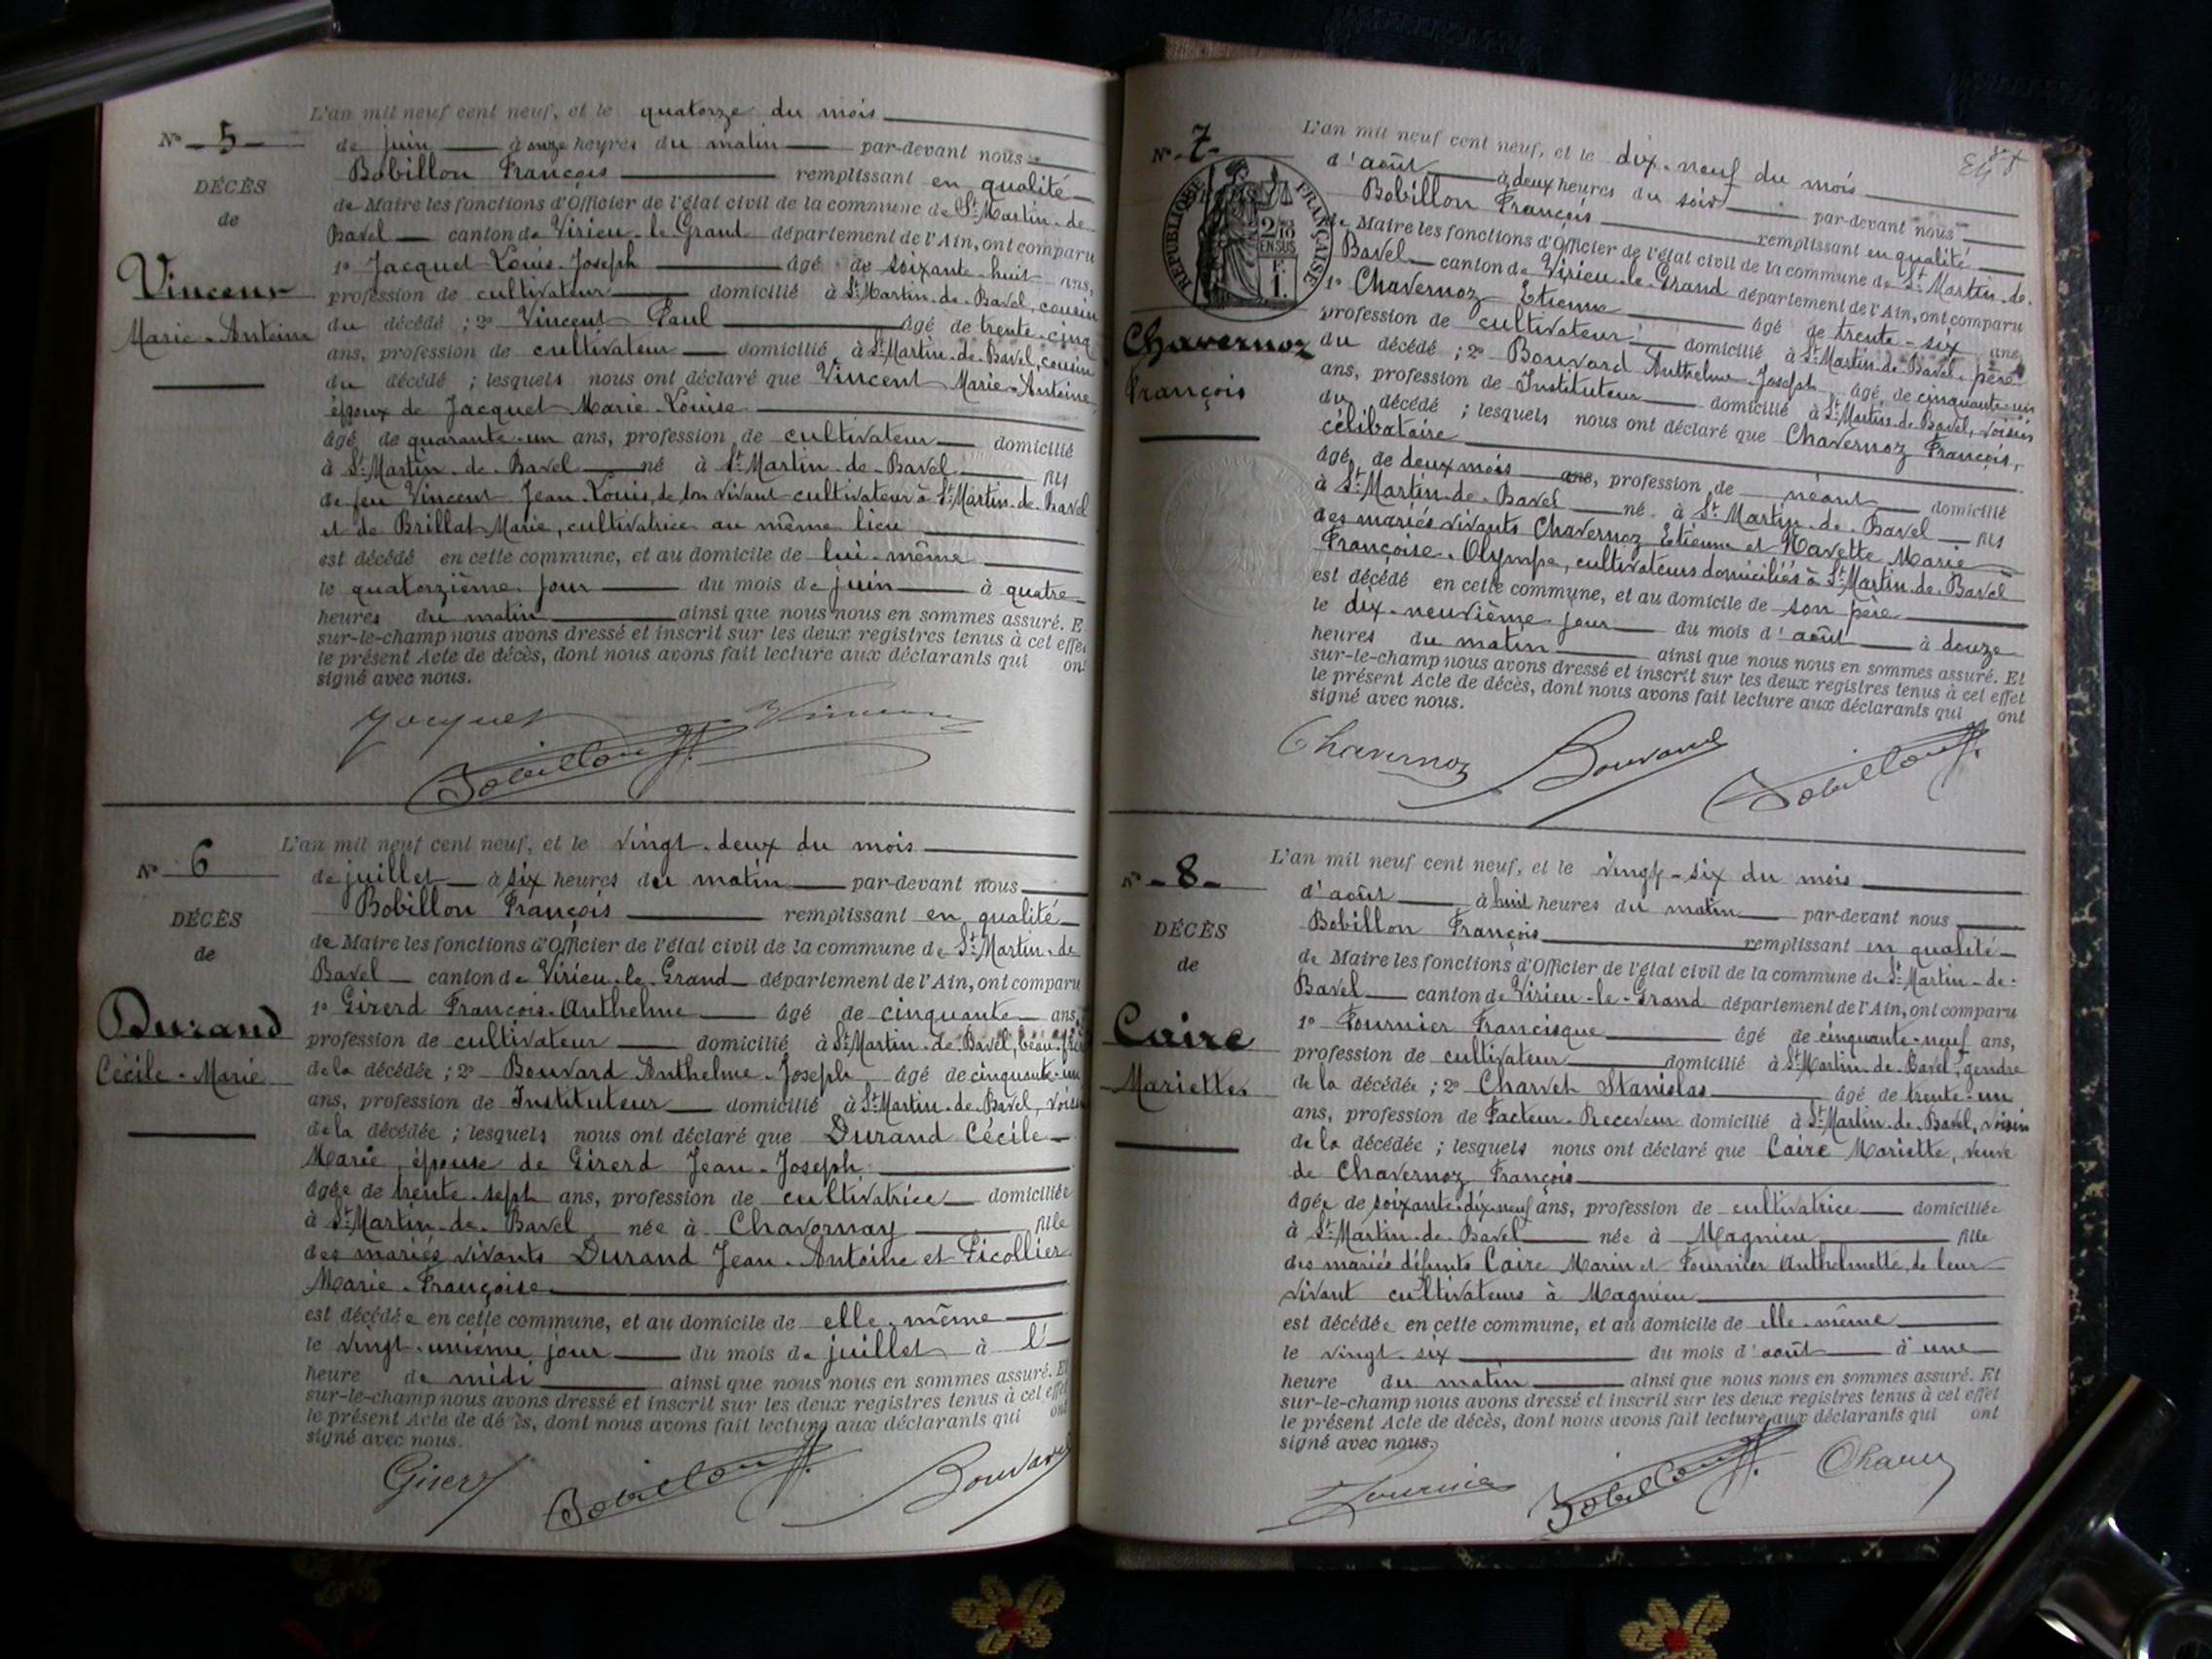 L'an mil neuf cent neuf, et le quatorze du mois
N° 5
de juin à onze heures du matin par-devant nous
Bobillon François remplissant en qualité
DÉCÈS
de Maire les fonctions d'Officier de l'état civil de la commune de St Martin-de-
de
Bavel canton de Virieu-le-Grand département de l'Ain, ont comparu
1° Jacquet Louis-Joseph âgé de soixante-huit ans,
Vincent
profession de cultivateur domicilié à St Martin-de-Bavel, cousin
Marie-Antoine
du décédé ; 2° Vincent Paul âgé de trente-cinq
ans, profession de cultivateur domicilié à St Martin-de-Bavel, cousin
du décédé ; lesquels nous ont déclaré que Vincent Marie-Antoine,
époux de Jacquet Marie-Louise
âgé de quarante-un ans, profession de cultivateur domicilié
à St Martin-de-Bavel né à St Martin-de-Bavel fils
de feu Vincent Jean-Louis, de son vivant cultivateur à St Martin-de-Bavel
et de Brillat Marie, cultivatrice au même lieu
est décédé en cette commune, et au domicile de lui-même
le quatorzième jour du mois de juin à quatre
heures du matin ainsi que nous nous en sommes assuré. E
sur-le-champ nous avons dressé et inscrit sur les deux registres tenus à cet effe
le présent Acte de décès, dont nous avons fait lecture aux déclarants qui ont
signé avec nous.
Jacquet Vincent
Bobillon F.
L'an mil neuf cent neuf, et le vingt-deux du mois
N° 6
de juillet à six heures du matin par-devant nous
Bobillon François remplissant en qualité
DÉCÈS
de Maire les fonctions d'Officier de l'état civil de la commune de St Martin-de
de
Bavel canton de Virieu-le-Grand département de l'Ain, ont comparu
1° Girerd François-Anthelme âgé de cinquante ans,
Durand
profession de cultivateur domicilié à St Martin-de-Bavel, beau-frère
Cécile-Marie
de la décédée ; 2° Bouvard Anthelme-Joseph âgé de cinquante-un
ans, profession de Instituteur domicilié à St Martin-de-Bavel, voisin
de la décédée ; lesquels nous ont déclaré que Durand Cécile-
Marie, épouse de Girerd Jean-Joseph
âgée de trente-sept ans, profession de cultivatrice domiciliée
à St Martin-de-Bavel née à Chavornay fille
des mariés vivants Durand Jean-Antoine et Picollier
Marie-Françoise
est décédée en cette commune, et au domicile de elle-même
le vingt-unième jour du mois de juillet à l'
heure de midi ainsi que nous nous en sommes assuré. Et
sur-le-champ nous avons dressé et inscrit sur les deux registres tenus à cet effet
le présent Acte de décès, dont nous avons fait lecture aux déclarants qui ont
signé avec nous.
Girerd Bobillon F. Bouvard
L'an mil neuf cent neuf, et le dix-neuf du mois
N° 7
d'août à deux heures du soir par-devant nous
Bobillon François remplissant en qualité
RÉPUBLIQUE FRANÇAISE
2/10 EN SUS
F. 1.
de Maire les fonctions d'Officier de l'état civil de la commune de St Martin-de-
Bavel canton de Virieu-le-Grand département de l'Ain, ont comparu
1° Chavernoz Etienne âgé de trente-six ans,
profession de cultivateur domicilié à St Martin-de-Bavel, père
Chavernoz
du décédé ; 2° Bouvard Anthelme-Joseph âgé de cinquante-un
François
ans, profession de Instituteur domicilié à St Martin-de-Bavel, voisin
du décédé ; lesquels nous ont déclaré que Chavernoz François,
célibataire
âgé de deux mois ans, profession de néant domicilié
à St Martin-de-Bavel né à St Martin-de-Bavel fils
des mariés vivants Chavernoz Etienne et Navette Marie
Françoise-Olympe, cultivateurs domiciliés à St Martin-de-Bavel
est décédé en cette commune, et au domicile de son père
le dix-neuvième jour du mois d'août à douze
heures du matin ainsi que nous nous en sommes assuré. Et
sur-le-champ nous avons dressé et inscrit sur les deux registres tenus à cet effet
le présent Acte de décès, dont nous avons fait lecture aux déclarants qui ont
signé avec nous.
Chavernoz Bouvard Bobillon F.
L'an mil neuf cent neuf, et le vingt-six du mois
N° 8
d'août à huit heures du matin par-devant nous
Bobillon François remplissant en qualité
DÉCÈS
de Maire les fonctions d'Officier de l'état civil de la commune de St Martin-de-
de
Bavel canton de Virieu-le-Grand département de l'Ain, ont comparu
1° Fournier Francisque âgé de cinquante-neuf ans,
Caire
profession de cultivateur domicilié à St Martin-de-Bavel, gendre
Mariette
de la décédée ; 2° Charvet Stanislas âgé de trente-un
ans, profession de Facteur-Receveur domicilié à St Martin-de-Bavel, voisin
de la décédée ; lesquels nous ont déclaré que Caire Mariette, veuve
de Chavernoz François
âgée de soixante-dix-neuf ans, profession de cultivatrice domiciliée
à St Martin-de-Bavel née à Magnieu fille
des mariés défunts Caire Marin et Fournier Anthelmette, de leur
vivant cultivateurs à Magnieu
est décédée en cette commune, et au domicile de elle-même
le vingt-six du mois d'août à une
heure du matin ainsi que nous nous en sommes assuré. Et
sur-le-champ nous avons dressé et inscrit sur les deux registres tenus à cet effet
le présent Acte de décès, dont nous avons fait lecture aux déclarants qui ont
signé avec nous.
Fournier Bobillon F. Charvet